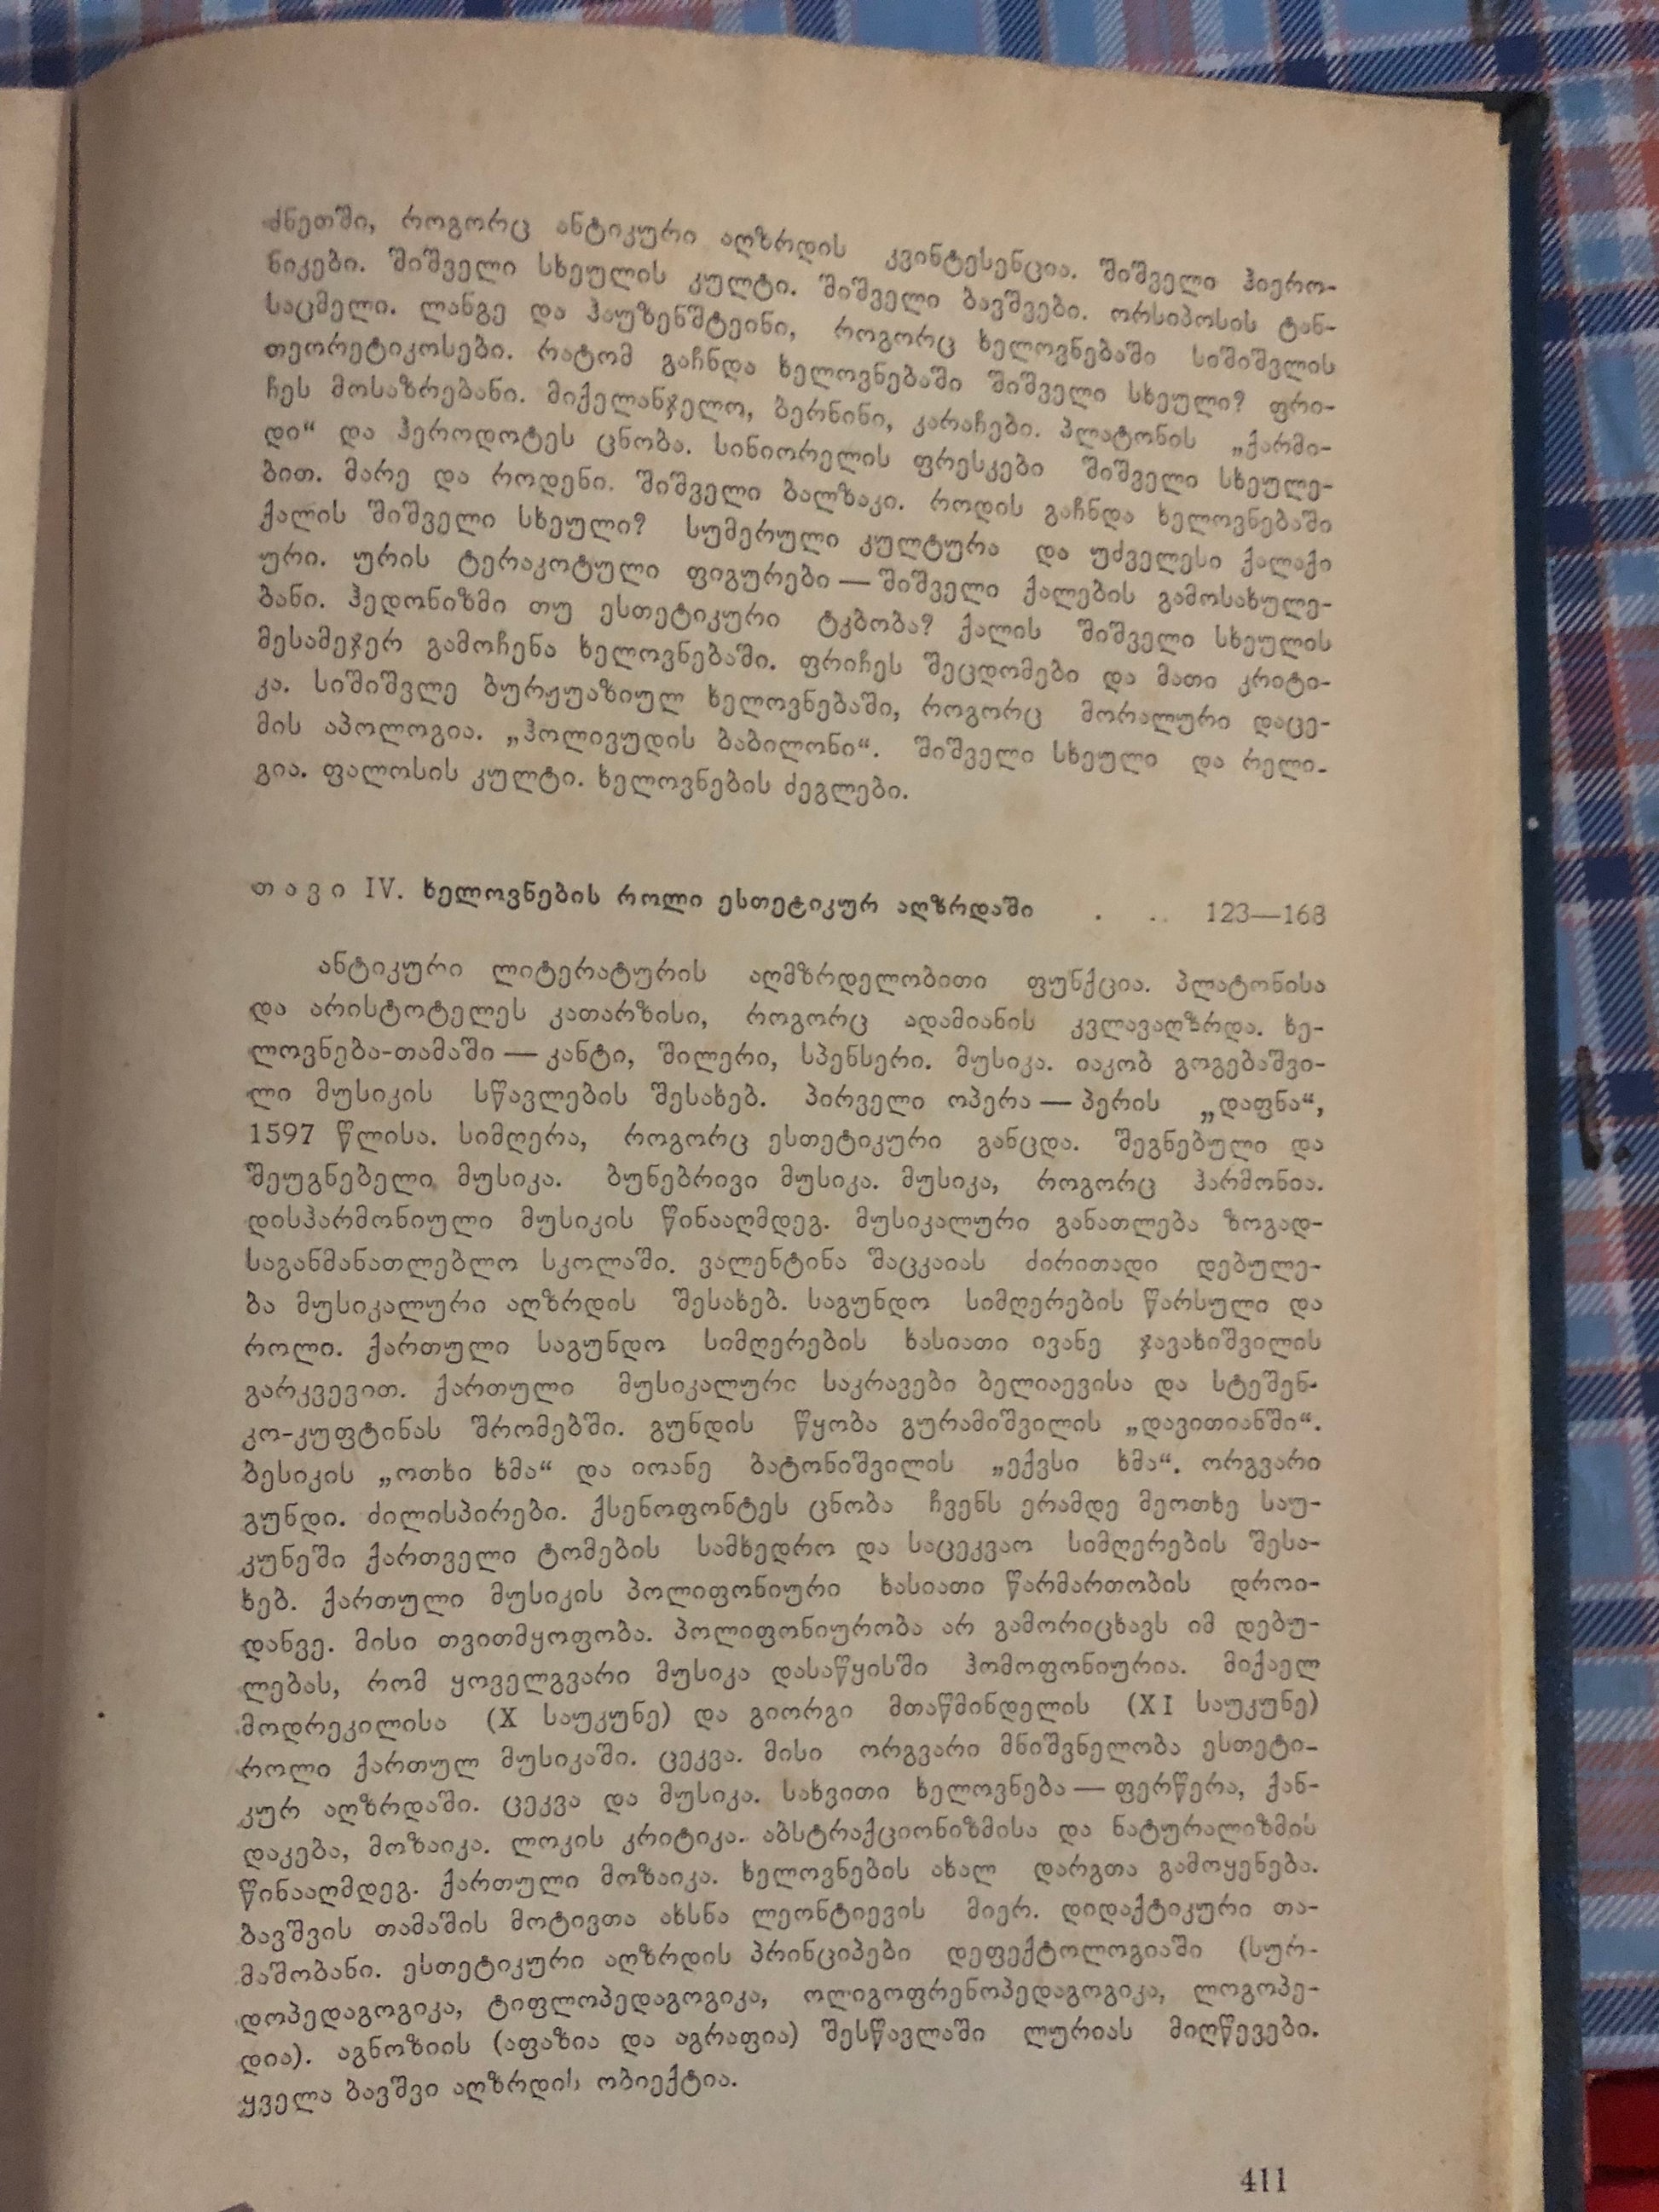 ძნეთში, როგორც ანტიკური აღზრდის კვინტესენცია. შიშველი ჰიერო-
ნიკები. შიშველი სხეულის კულტი. შიშველი ბავშვები. ორსიპოსის ტან-
საცმელი. ლანგე და ჰაუზენშტეინი, როგორც ხელოვნებაში სიშიშვლის
თეორეტიკოსები. რატომ გაჩნდა ხელოვნებაში შიშველი სხეული? ფრი-
ჩეს მოსაზრებანი. მიქელანჯელო, ბერნინი, კარაჩები. პლატონის „ქარმი-
დი“ და ჰეროდოტეს ცნობა. სინიორელის ფრესკები შიშველი სხეულე-
ბით. მარე და როდენი. შიშველი ბალზაკი. როდის გაჩნდა ხელოვნებაში
ქალის შიშველი სხეული? სუმერული კულტურა და უძველესი ქალაქი
ური. ურის ტერაკოტული ფიგურები — შიშველი ქალების გამოსახულე-
ბანი. ჰედონიზმი თუ ესთეტიკური ტკბობა? ქალის შიშველი სხეულის
მესამეჯერ გამოჩენა ხელოვნებაში. ფრიჩეს შეცდომები და მათი კრიტი-
კა. სიშიშვლე ბურჟუაზიულ ხელოვნებაში, როგორც მორალური დაცე-
მის აპოლოგია. „ჰოლივუდის ბაბილონი“. შიშველი სხეული და რელი-
გია. ფალოსის კულტი. ხელოვნების ძეგლები.
თავი IV. ხელოვნების როლი ესთეტიკურ აღზრდაში . .. 123—168
ანტიკური ლიტერატურის აღმზრდელობითი ფუნქცია. პლატონისა
და არისტოტელეს კათარზისი, როგორც ადამიანის კვლავაღზრდა. ხე-
ლოვნება-თამაში — კანტი, შილერი, სპენსერი. მუსიკა. იაკობ გოგებაშვი-
ლი მუსიკის სწავლების შესახებ. პირველი ოპერა — პერის „დაფნა“,
1597 წლისა. სიმღერა, როგორც ესთეტიკური განცდა. შეგნებული და
შეუგნებელი მუსიკა. ბუნებრივი მუსიკა. მუსიკა, როგორც ჰარმონია.
დისჰარმონიული მუსიკის წინააღმდეგ. მუსიკალური განათლება ზოგად-
საგანმანათლებლო სკოლაში. ვალენტინა შაცკაიას ძირითადი დებულე-
ბა მუსიკალური აღზრდის შესახებ. საგუნდო სიმღერების წარსული და
როლი. ქართული საგუნდო სიმღერების ხასიათი ივანე ჯავახიშვილის
გარკვევით. ქართული მუსიკალური საკრავები ბელიაევისა და სტეშენ-
კო-კუფტინას შრომებში. გუნდის წყობა გურამიშვილის „დავითიანში“.
ბესიკის „ოთხი ხმა“ და იოანე ბატონიშვილის „ექვსი ხმა“. ორგვარი
გუნდი. ძილისპირები. ქსენოფონტეს ცნობა ჩვენს ერამდე მეოთხე საუ-
კუნეში ქართველი ტომების სამხედრო და საცეკვაო სიმღერების შესა-
ხებ. ქართული მუსიკის პოლიფონიური ხასიათი წარმართობის დროი-
დანვე. მისი თვითმყოფობა. პოლიფონიურობა არ გამორიცხავს იმ დებუ-
ლებას, რომ ყოველგვარი მუსიკა დასაწყისში ჰომოფონიურია. მიქაელ
მოდრეკილისა (X საუკუნე) და გიორგი მთაწმინდელის (XI საუკუნე)
როლი ქართულ მუსიკაში. ცეკვა. მისი ორგვარი მნიშვნელობა ესთეტი-
კურ აღზრდაში. ცეკვა და მუსიკა. სახვითი ხელოვნება — ფერწერა, ქან-
დაკება, მოზაიკა. ლოკის კრიტიკა. აბსტრაქციონიზმისა და ნატურალიზმის
წინააღმდეგ. ქართული მოზაიკა. ხელოვნების ახალ დარგთა გამოყენება.
ბავშვის თამაშის მოტივთა ახსნა ლეონტიევის მიერ. დიდაქტიკური თა-
მაშობანი. ესთეტიკური აღზრდის პრინციპები დეფექტოლოგიაში (სურ-
დოპედაგოგიკა, ტიფლოპედაგოგიკა, ოლიგოფრენოპედაგოგიკა, ლოგოპე-
დია). აგნოზიის (აფაზია და აგრაფია) შესწავლაში ლურიას მიღწევები.
ყველა ბავშვი აღზრდის ობიექტია.
411